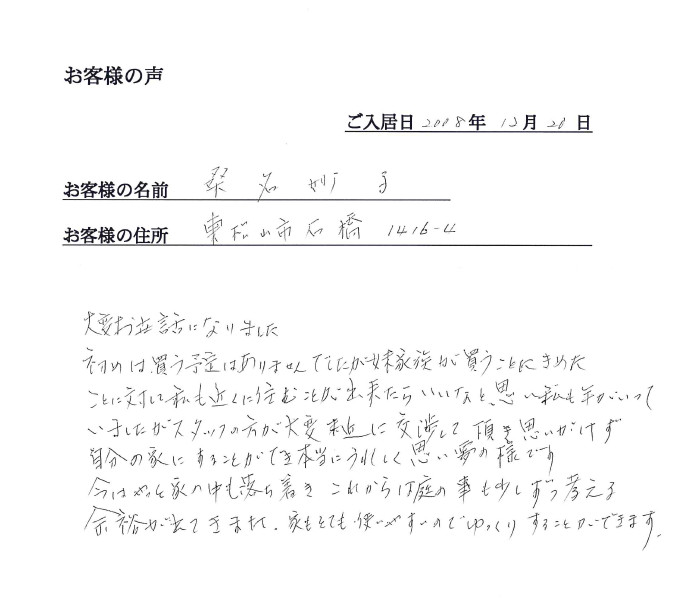 お客様の声
ご入居日 2008年 12月 20日
お客様の名前 桑名 妙子
お客様の住所 東松山市石橋 1416-4
大変お世話になりました
初めは買う予定はありませんでしたが妹家族が買うことにきめた
ことに対して私も近くに住むことが出来たらいいなと、思い私も年がいって
いましたがスタッフの方が大変 に交渉して頂き思いがけず
自分の家にすることができ本当にうれしく思い夢の様です
今はやっと家の中も落ち着き これからは庭の事も少しずつ考える
余裕が出てきました、家もとても使いやすいのでゆっくりすることができます.